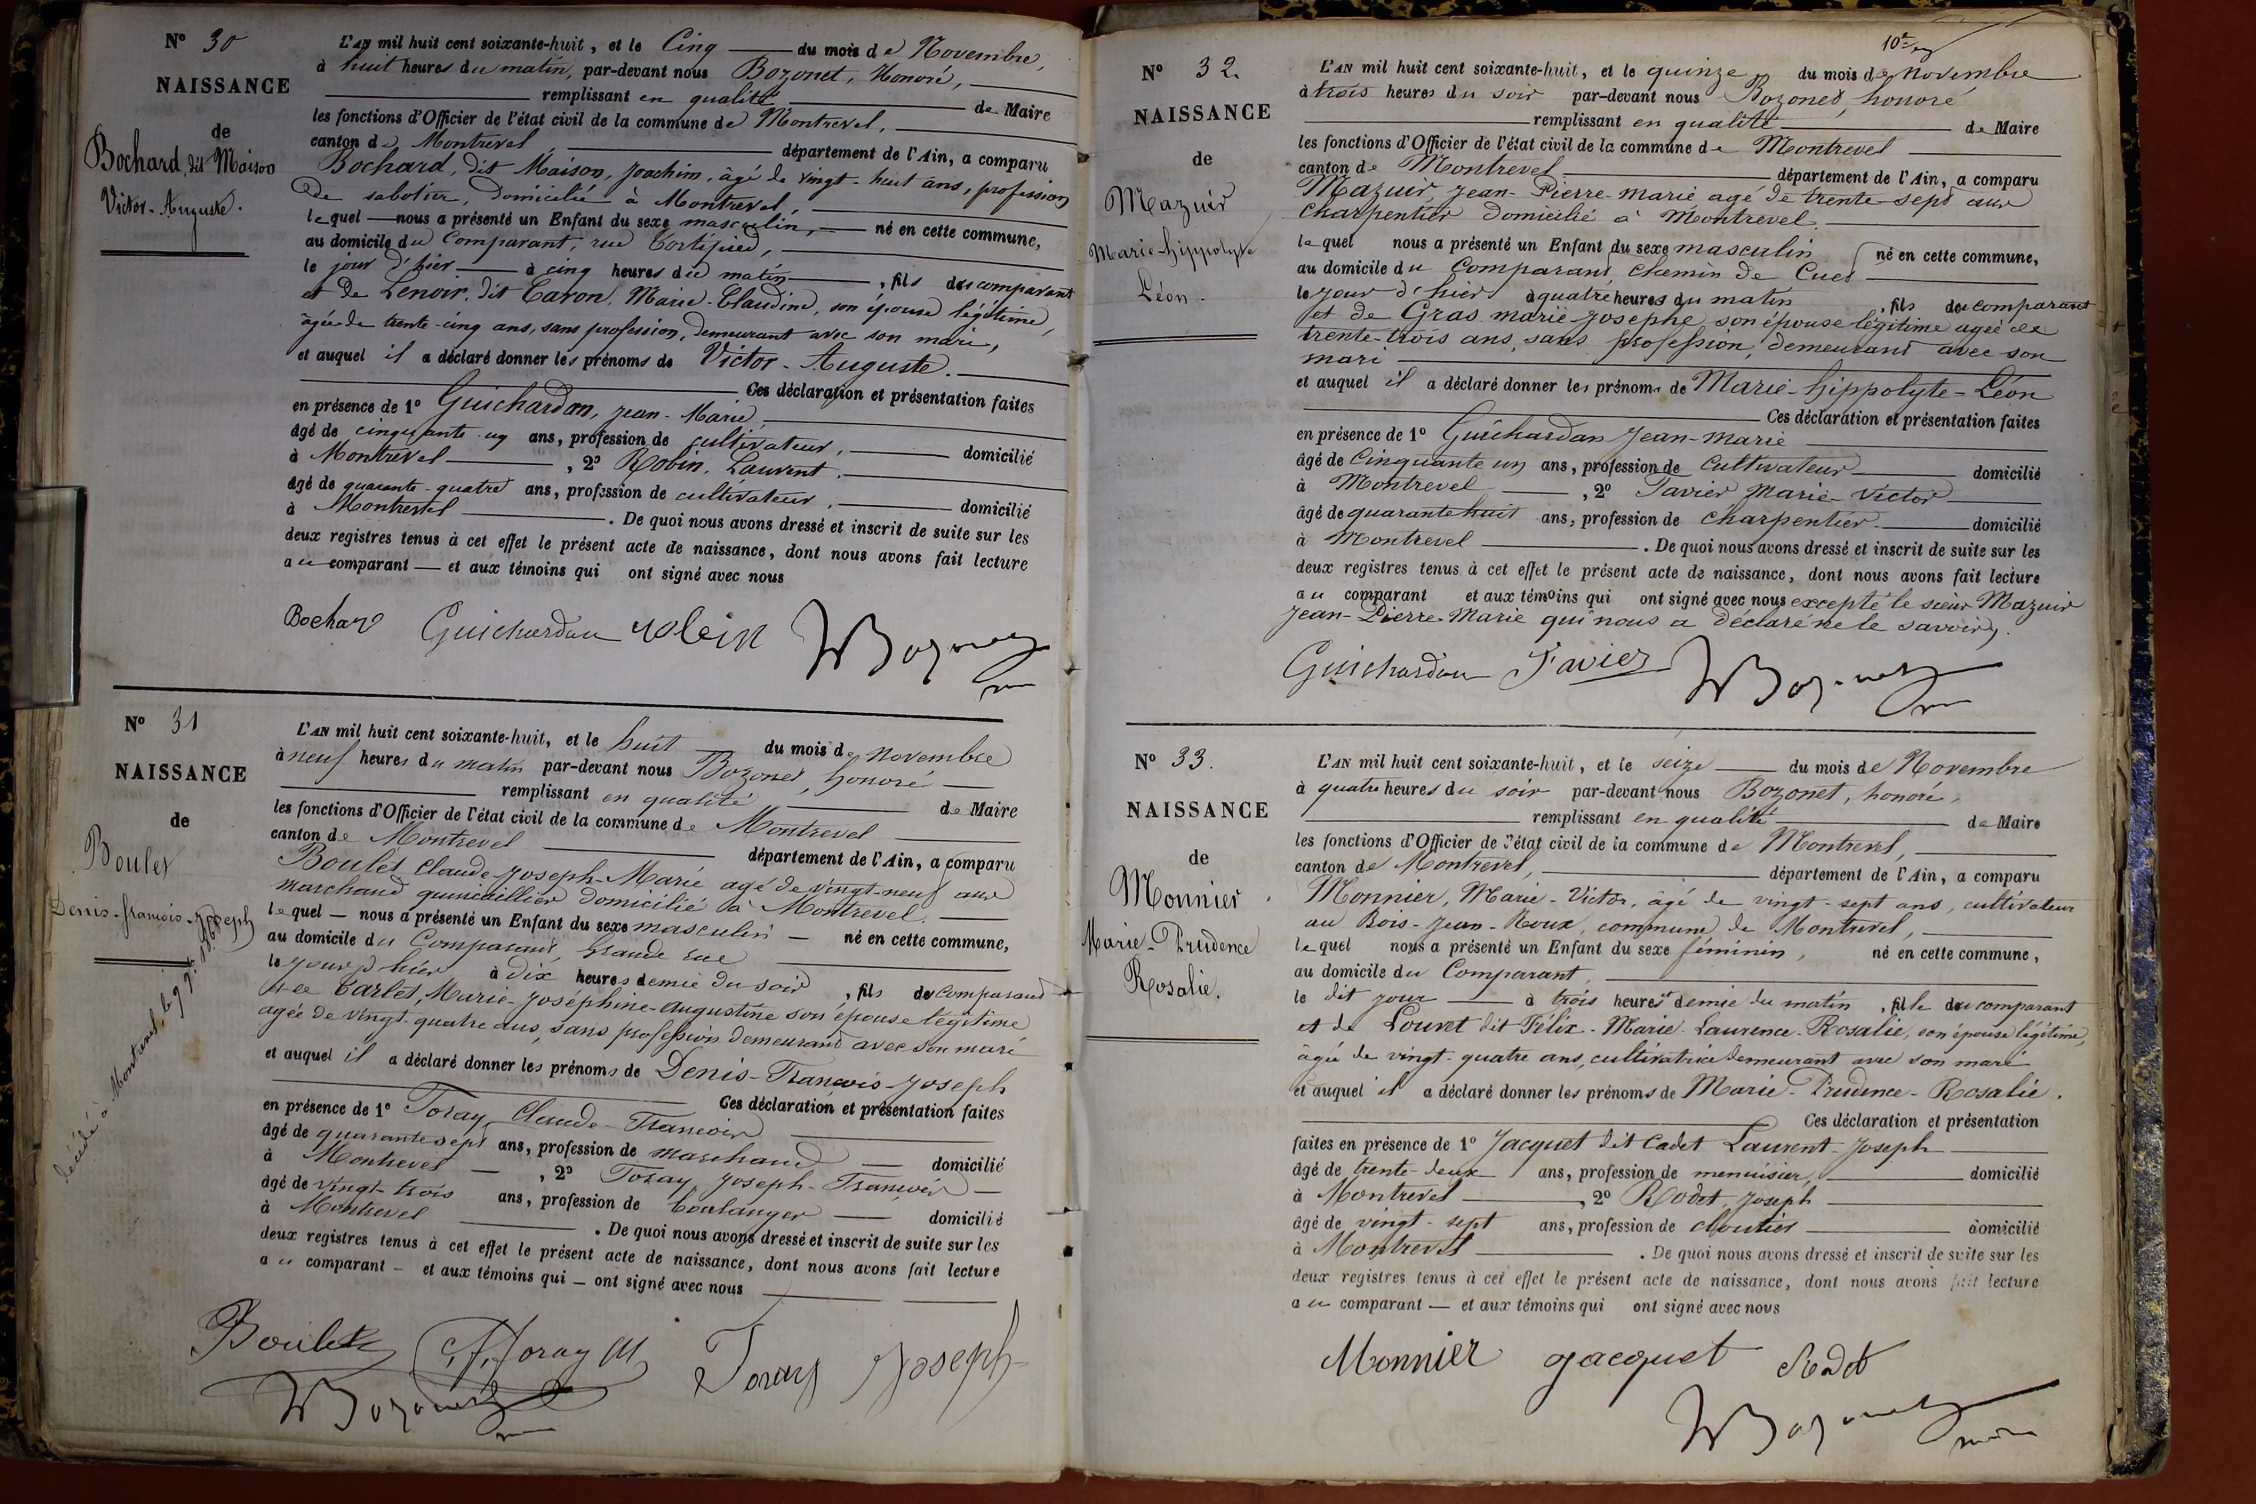 N° 30
NAISSANCE
de
Bochard, dit Maison
Victor-Auguste.
L'AN mil huit cent soixante-huit, et le Cinq du mois de Novembre,
à huit heures du matin, par-devant nous Bozonet, Honoré,
remplissant en qualité de Maire
les fonctions d'Officier de l'état civil de la commune de Montrevel,
canton de Montrevel, département de l'Ain, a comparu
Bochard, dit Maison, Joachim, âgé de vingt-huit ans, profession
de sabotier, domicilié à Montrevel,
lequel nous a présenté un Enfant du sexe masculin, né en cette commune,
au domicile du Comparant, rue Cortépied,
le jour d'hier à cinq heures du matin, fils du comparant
et de Lenoir, dit Caron, Marie-Claudine, son épouse légitime,
âgée de trente-cinq ans, sans profession, demeurant avec son mari,
et auquel il a déclaré donner les prénoms de Victor-Auguste.
Ces déclaration et présentation faites
en présence de 1° Guichardan, Jean-Marie,
âgé de cinquante-un ans, profession de cultivateur, domicilié
à Montrevel, 2° Robin, Laurent,
âgé de quarante-quatre ans, profession de cultivateur, domicilié
à Montrevel. De quoi nous avons dressé et inscrit de suite sur les
deux registres tenus à cet effet le présent acte de naissance, dont nous avons fait lecture
au comparant et aux témoins qui ont signé avec nous
Bochard Guichardan Robin Bozonet
N° 31
NAISSANCE
de
Boulet
Denis-françois-Joseph
décédé à Montrevel, le 9 9bre 1868
L'AN mil huit cent soixante-huit, et le huit du mois de Novembre
à neuf heures du matin par-devant nous Bozonet, honoré
remplissant en qualité de Maire
les fonctions d'Officier de l'état civil de la commune de Montrevel
canton de Montrevel département de l'Ain, a comparu
Boulet Claude-Joseph-Marie agé de vingt-neuf ans
marchand quincaillier domicilié à Montrevel.
lequel nous a présenté un Enfant du sexe masculin né en cette commune,
au domicile du Comparant, Grande rue
le jour d'hier à dix heures demie du soir, fils du comparant
et de Carlet, Marie-Joséphine-Augustine son épouse légitime
agée de vingt-quatre ans, sans profession demeurant avec son mari
et auquel il a déclaré donner les prénoms de Denis-François-Joseph
Ces déclaration et présentation faites
en présence de 1° Toray, Claude-François
âgé de quarante sept ans, profession de marchand domicilié
à Montrevel, 2° Toray Joseph-François
âgé de vingt-trois ans, profession de boulanger domicilié
à Montrevel. De quoi nous avons dressé et inscrit de suite sur les
deux registres tenus à cet effet le présent acte de naissance, dont nous avons fait lecture
au comparant et aux témoins qui ont signé avec nous
Boulet Toray Toray Joseph
Bozonet
10e
N° 32.
NAISSANCE
de
Mazuir
Marie-hippolyte
Léon.
L'AN mil huit cent soixante-huit, et le quinze du mois de novembre
à trois heures du soir par-devant nous Bozonet, honoré
remplissant en qualité de Maire
les fonctions d'Officier de l'état civil de la commune de Montrevel
canton de Montrevel département de l'Ain, a comparu
Mazuir Jean-Pierre-Marie agé de trente-sept ans
charpentier domicilié à Montrevel.
lequel nous a présenté un Enfant du sexe masculin né en cette commune,
au domicile du Comparant, chemin de Cuet
le jour d'hier à quatre heures du matin, fils du comparant
et de Gras marie-josephe son épouse légitime agée de
trente-trois ans, sans profession, demeurant avec son
mari
et auquel il a déclaré donner les prénoms de Marie-hippolyte-Léon
Ces déclaration et présentation faites
en présence de 1° Guichardan Jean-marie
âgé de Cinquante un ans, profession de Cultivateur domicilié
à Montrevel, 2° Favier Marie-Victor
âgé de quarante huit ans, profession de charpentier domicilié
à Montrevel. De quoi nous avons dressé et inscrit de suite sur les
deux registres tenus à cet effet le présent acte de naissance, dont nous avons fait lecture
au comparant et aux témoins qui ont signé avec nous excepté le sieur Mazuir
Jean-Pierre-Marie qui nous a déclaré ne le savoir.
Guichardan Favier Bozonet
N° 33.
NAISSANCE
de
Monnier
Marie-Prudence
Rosalie.
L'AN mil huit cent soixante-huit, et le seize du mois de Novembre
à quatre heures du soir par-devant nous Bozonet, honoré,
remplissant en qualité de Maire
les fonctions d'Officier de l'état civil de la commune de Montrevel,
canton de Montrevel, département de l'Ain, a comparu
Monnier, Marie-Victor, âgé de vingt-sept ans, cultivateur
au Bois-Jean-Roux, commune de Montrevel,
lequel nous a présenté un Enfant du sexe féminin, né en cette commune,
au domicile du Comparant,
le dit jour à trois heures et demie du matin, fille du comparant
et de Louvet dit Félix-Marie-Laurence-Rosalie, son épouse légitime,
âgée de vingt-quatre ans, cultivatrice demeurant avec son mari
et auquel il a déclaré donner les prénoms de Marie-Prudence-Rosalie.
Ces déclaration et présentation
faites en présence de 1° Jacquet dit Cadet Laurent-Joseph
âgé de trente-deux ans, profession de menuisier, domicilié
à Montrevel, 2° Rodet, Joseph
âgé de vingt-sept ans, profession de cloutier domicilié
à Montrevel. De quoi nous avons dressé et inscrit de suite sur les
deux registres tenus à cet effet le présent acte de naissance, dont nous avons fait lecture
au comparant et aux témoins qui ont signé avec nous
Monnier Jacquet Rodet
Bozonet